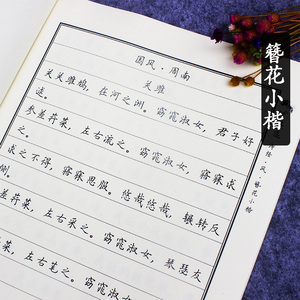 簪花小楷
国风·周南
关雎
关关雎鸠，在河之洲。窈窕淑女，君子好
逑。
参差荇菜，左右流之。窈窕淑女，寤寐求
之。
求之不得，寤寐思服。悠哉悠哉，辗转反
侧。
差荇菜，左右采之。窈窕淑女，琴瑟友
荇菜，左右芼之。窈窕淑女，
风·簪花小楷